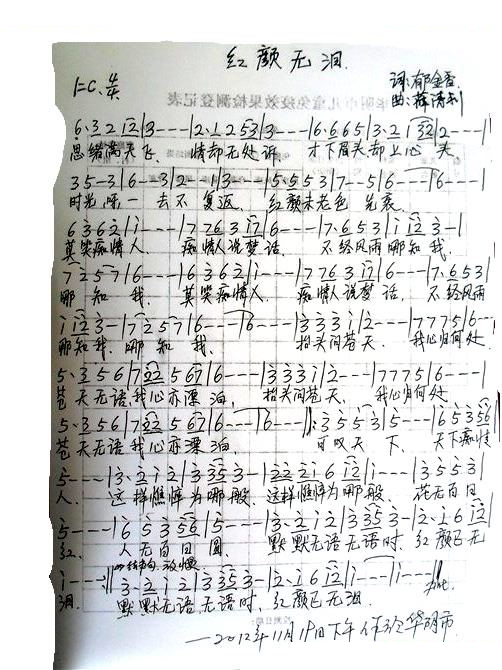 红颜无泪
1=C 4/4
词:郁金香
曲:薛清利
6·3 2 1̇2̇|3----|2·1 2 5 3|3----|6·6 6 5|3·2 1 3 2|2----|
思绪满天飞, 情却无处诉 才下眉头却上心头
3 5--3|6---3|2---1|3----|5 5 5 3|7--5|6---|6---|
时光呀一去不复返, 红颜未老色先衰
6 3 6 2|1----|7 7 6 3 1 7|6----|7·6 5 3|1 1 2 3-|
莫笑痴情人, 痴情人说梦话, 不经风雨哪知我,
7 2 5 7|6----|6 3 6 2|1----|7 7 6 3 1 7|6----|7·6 5 3|
哪知我, 莫笑痴情人, 痴情人说梦话, 不经风雨
1 1 2 3-|7 2 5 7|6----|6----|3 3 3 1|2----|7 7 7 5|6----|
哪知我, 哪知我, 抬头问苍天, 我心归何处
5·3 5 6|7 2 2 5 6 7|6----|3 3 3 1|2----|7 7 7 5|6----|
苍天无语,我心亦漂泊, 抬头问苍天, 我心归何处
5·3 5 6|7 2 2 5 6 7|6----|6----|:3 5 5 3|5----|6 5 3 5 6|
苍天无语我心亦漂泊 可叹天下, 天下痴情
5----|3·2 1 2|3 3 5 3-|2 2 2 1 6 1 2|1----|3 5 5 3|
人, 这样憔悴为哪般, 这样憔悴为哪般, 花无百日
5----|6 5 3 5 6|5----|3·2 1 2|3 3 5 3-|2·1 6 1 2|
红, 人无百日圆, 默默无语无语时, 红颜已无
1----:|3·2 1 2|3 3 5 3-|2·1 6 1 2|1----|1----||
结束句 放慢
泪 默默无语,无语时, 红颜已无泪
——2012年11月19日下午作于华阴市